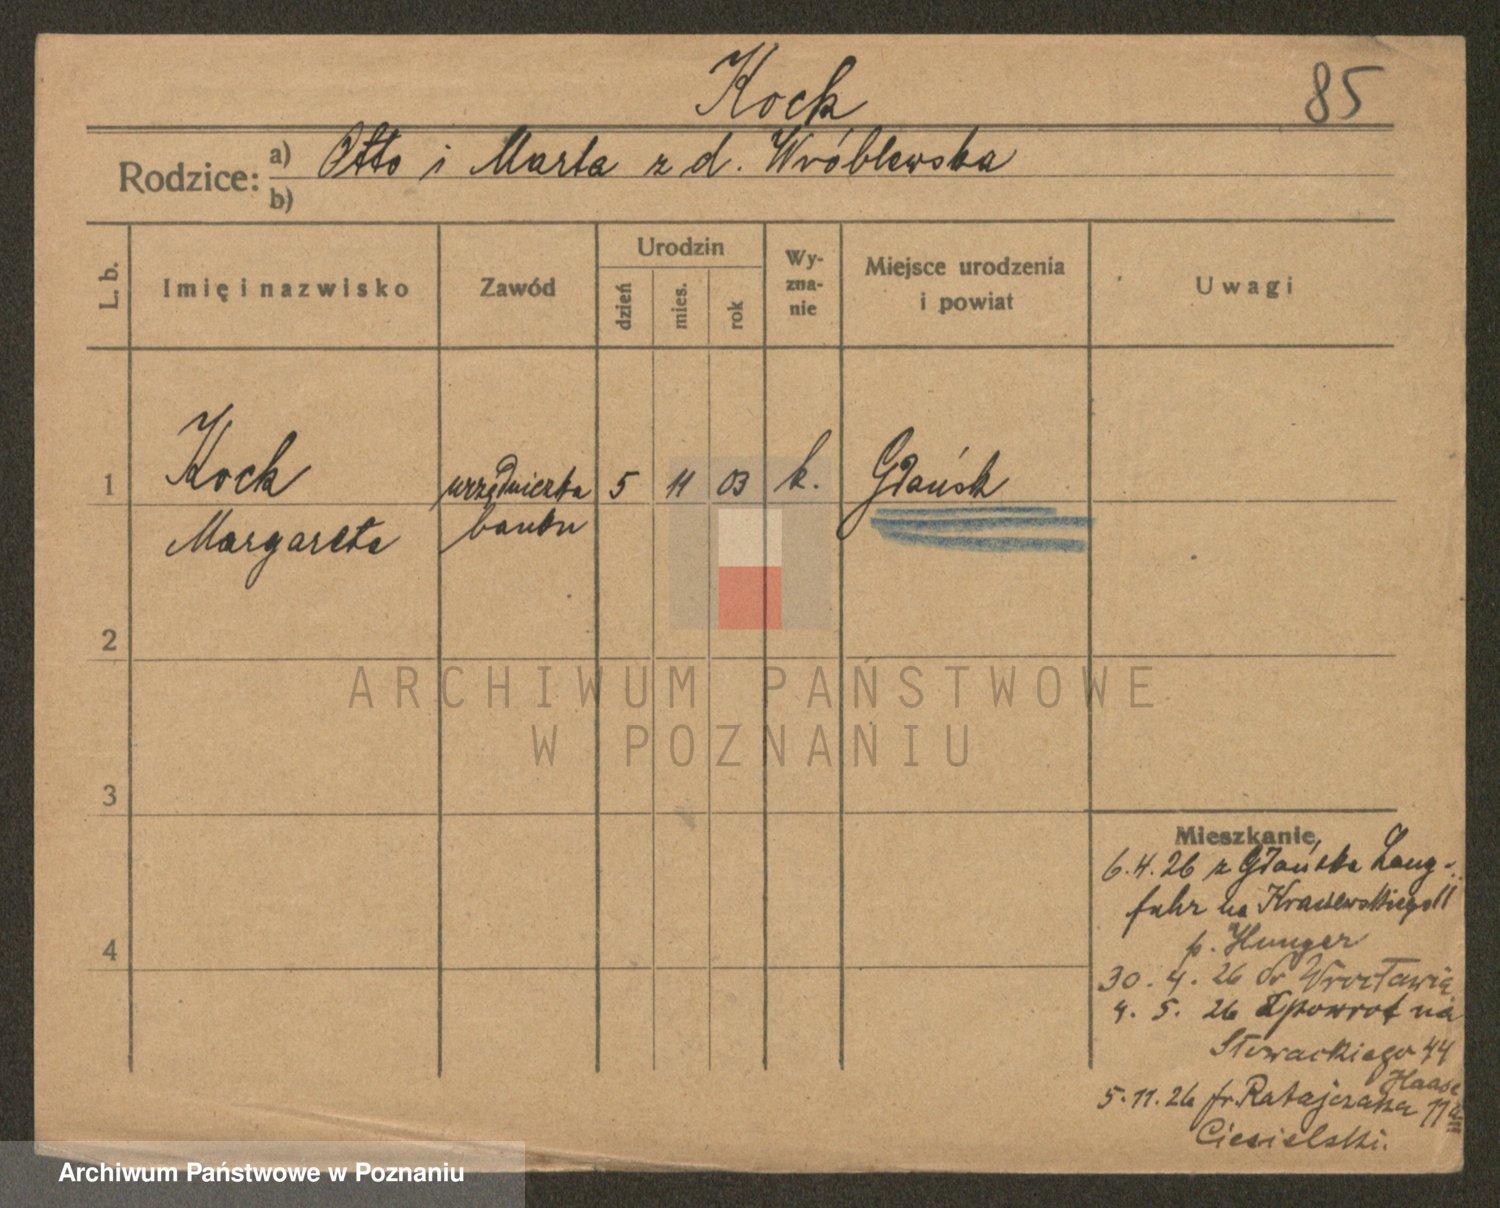 Kock
85
Rodzice:
a) Otto i Marta z d. Wróblewska
b)
L. b.
Imię i nazwisko
Zawód
Urodzin
dzień
mies.
rok
Wy-
zna-
nie
Miejsce urodzenia
i powiat
Uwagi
1
Kock
Margarete
urzędniczka
banku
5
11
03
k.
Gdańsk
2
3
4
ARCHIWUM PAŃSTWOWE
W POZNANIU
Mieszkanie
6.4.26 z Gdańska Lang-
fuhr na Kraszewskiego 11
p. Hunger
30. 4. 26 Wrocławia
4. 5. 26 powrot na
Słowackiego 44
Haase
5.11.26 fr. Ratajczaka 11a
Ciesielski.
Archiwum Państwowe w Poznaniu